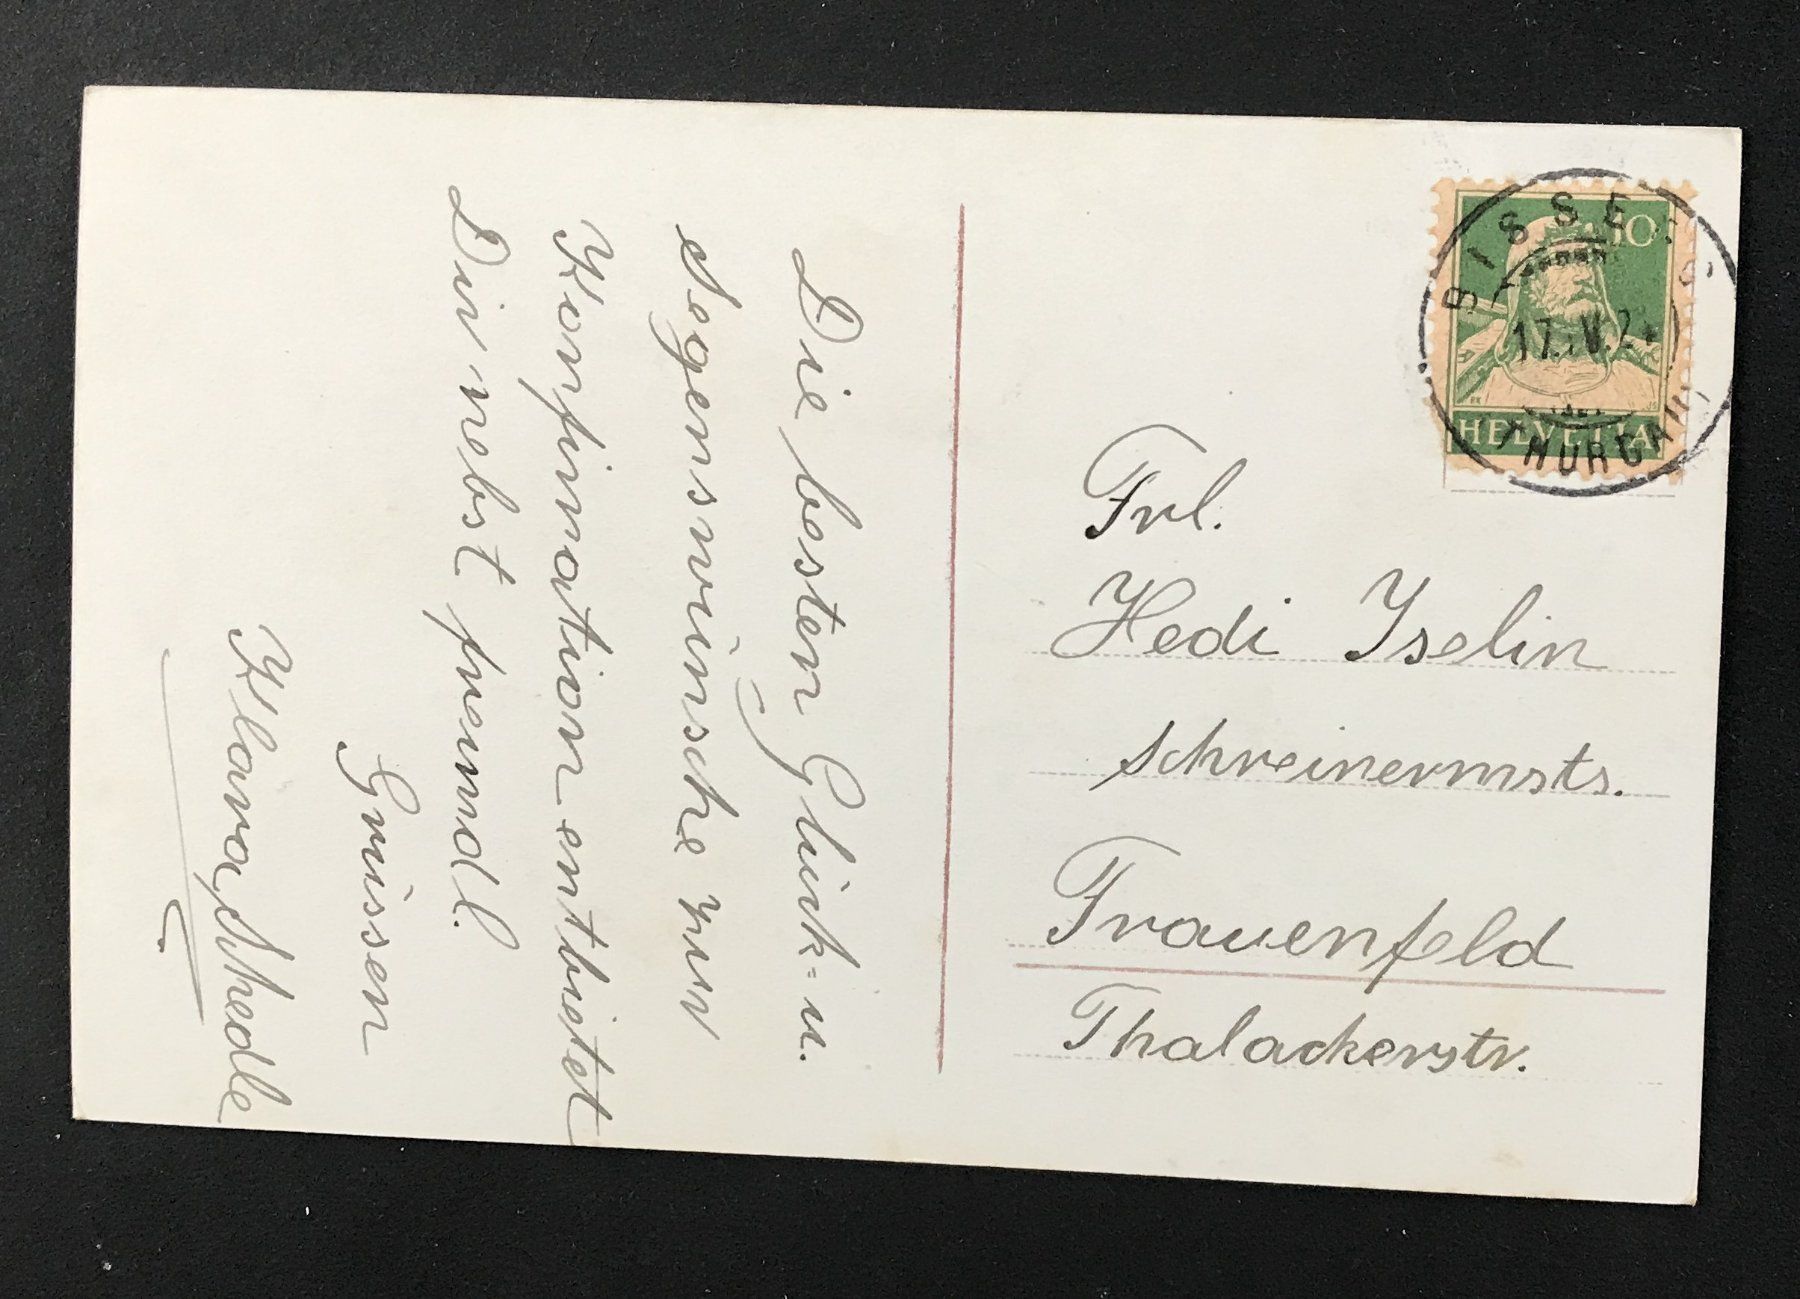 Die besten Glück- u.
Segenswünsche zur
Konfirmation entbietet
Dir nebst freundl.
Grüssen
Klara
10
HELVETIA
THURGAU
Frl.
Hedi Iselin
Schreinermsts.
Frauenfeld
Thalackerstr.